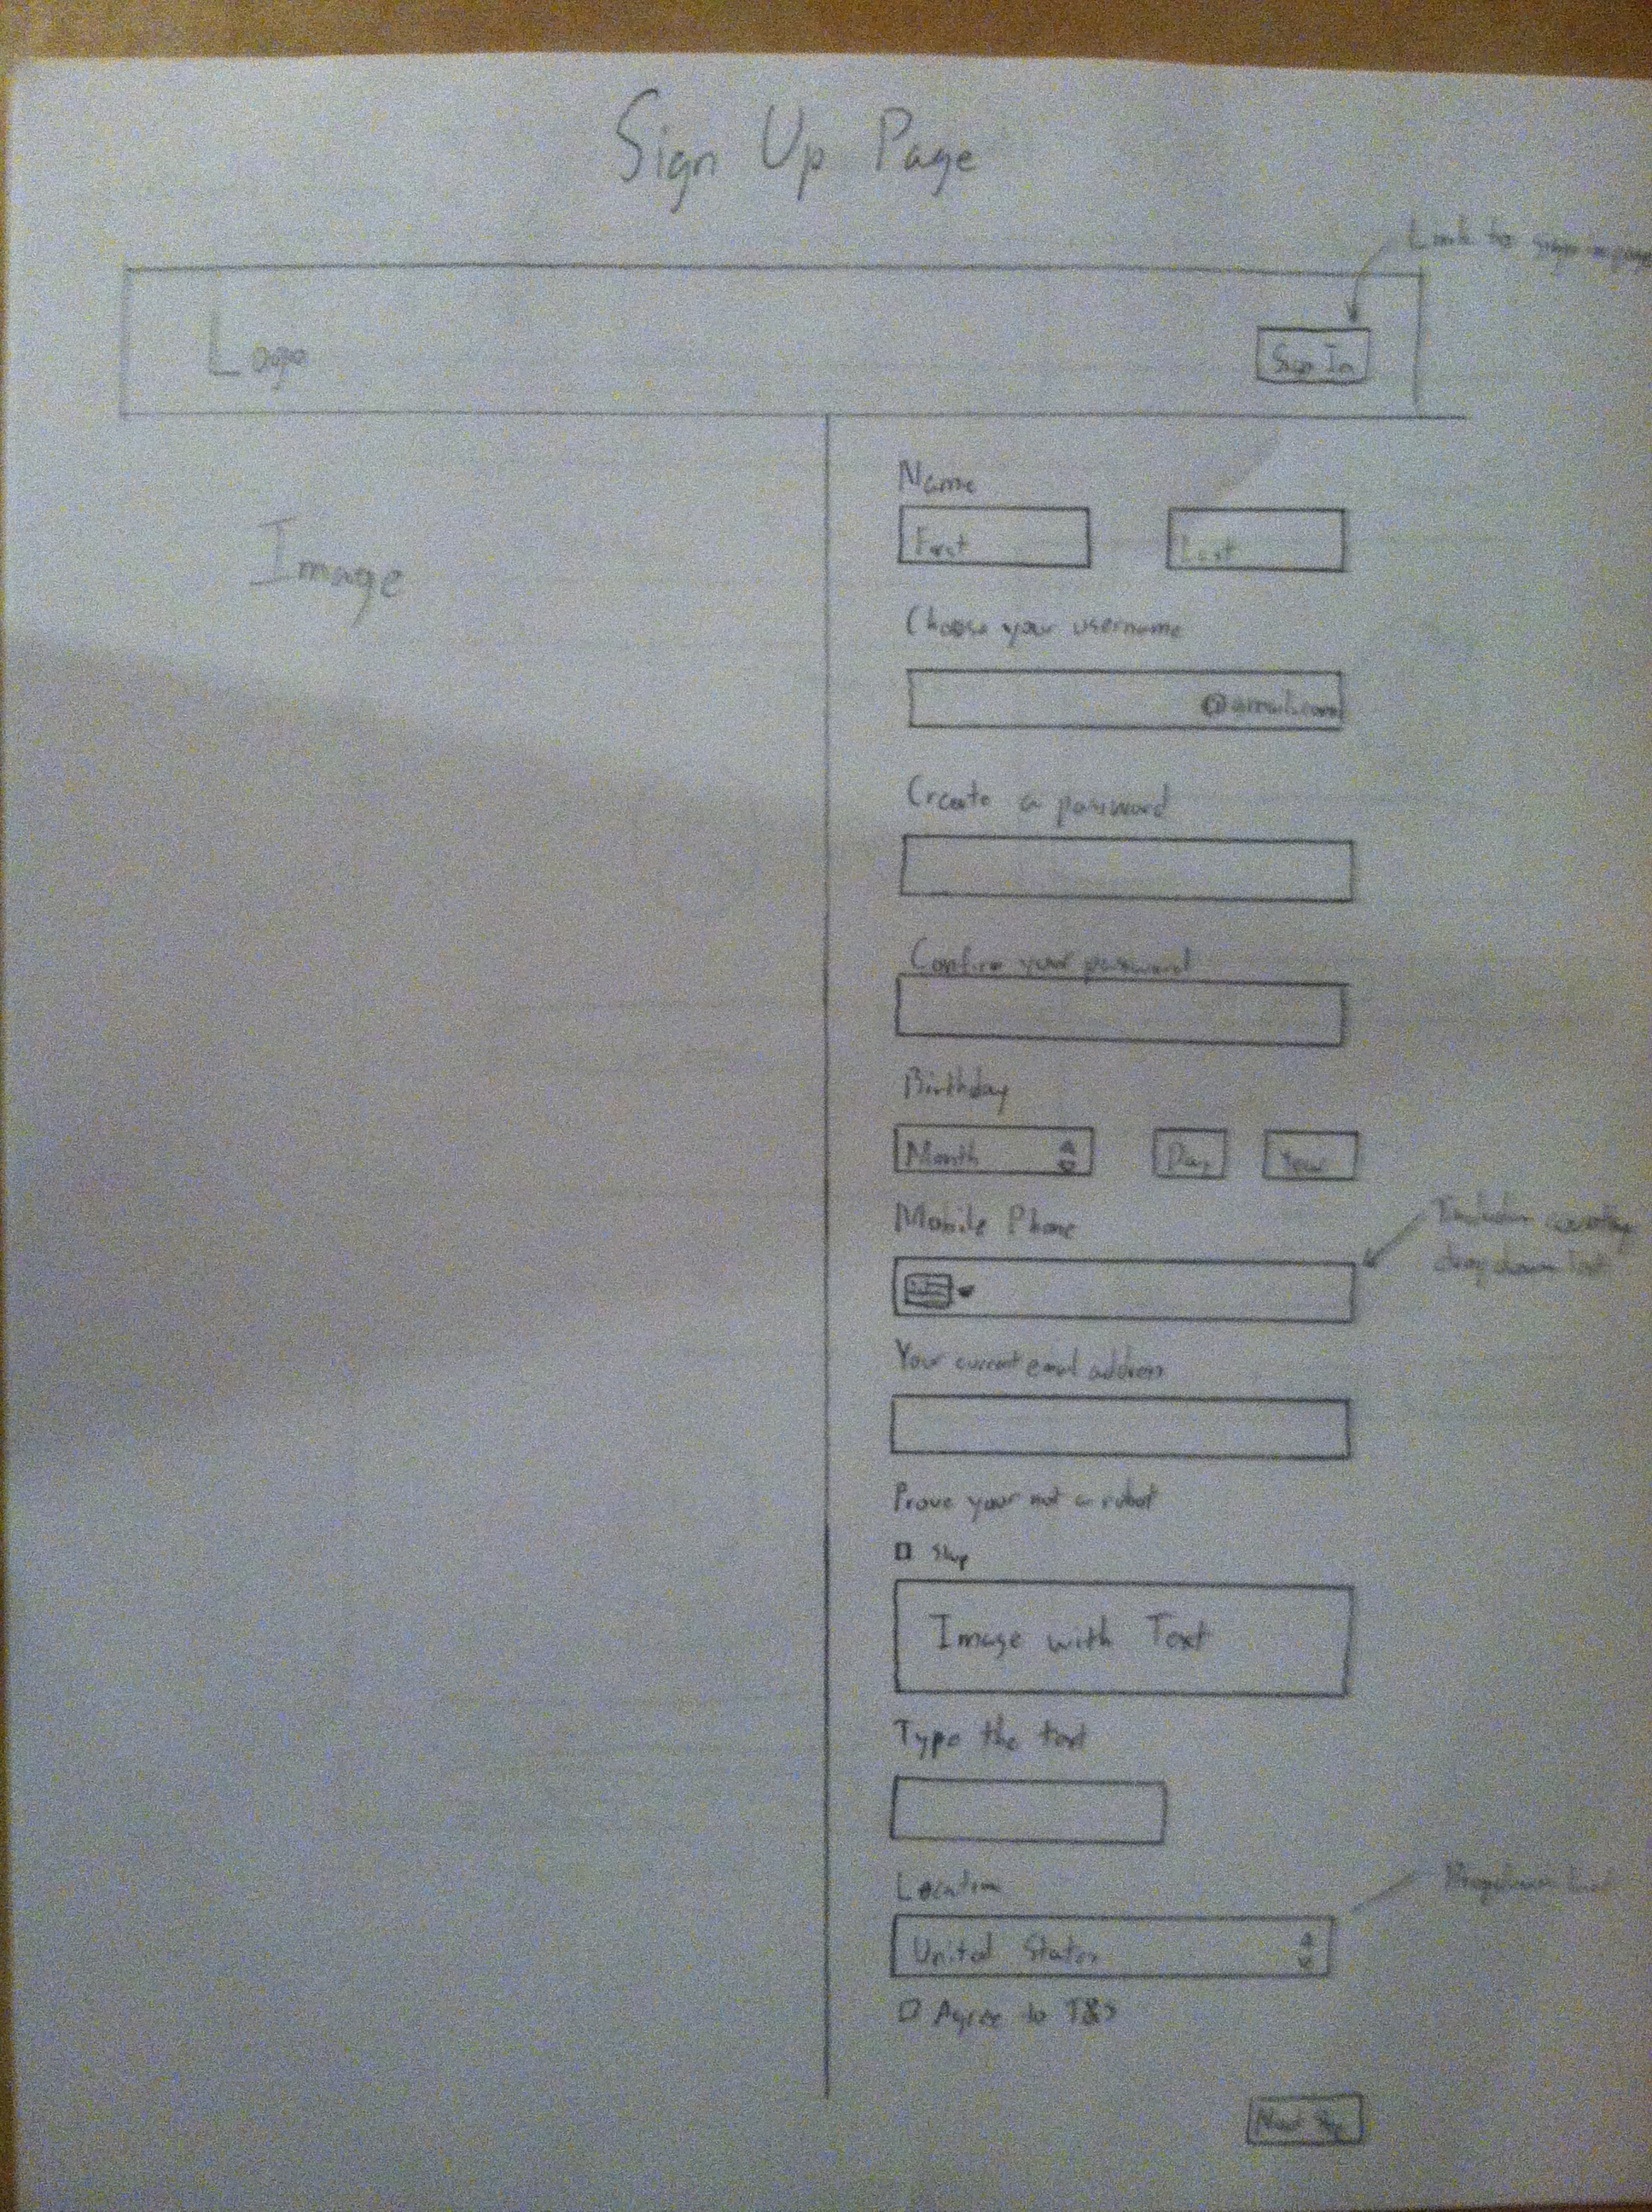 Sign Up Page
Link to sign in page
Logo
Sign In
Image
Name
First Last
Choose your username
@email.com
Create a password
Confirm your password
Birthday
Month Day Year
Mobile Phone
Includes country
drop down list
Your current email address
Prove your not a robot
Skip
Image with Text
Type the text
Location
Dropdown list
United States
Agree to
Next